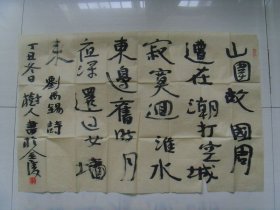 山圍故國周
遭在潮打空城
寂寞迴淮水
東邊舊时月
夜深還过女墻
来
劉禹錫詩
丁丑冬日樹人書於金陵